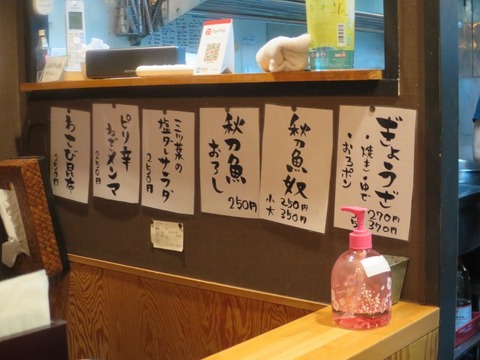 ぎょうざ
・焼き・ゆで 270円
・おろポン 370円
秋刀魚奴
小 250円
大 350円
秋刀魚
おろし
250円
三ツ葉の
塩ダーサラダ
350円
ピリ辛
ねぎメンマ
250円
わさび昆布
250円